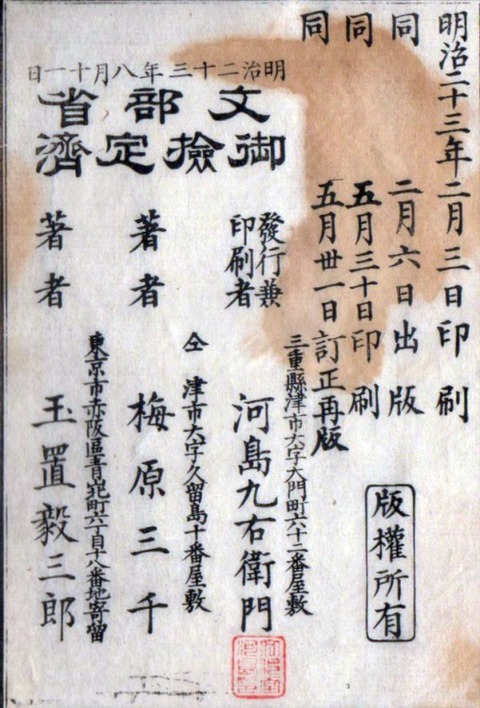 明治二十三年二月三日印刷
同 二月六日出版
同 五月三十日印刷
同 五月卅一日訂正再版
版權所有
明治二十三年八月十一日
文部省
御撿定濟
發行兼
印刷者
三重縣津市大字大門町六十二番屋敷
河島九右衛門
著者
仝 津市大字久留島十番屋敷
梅原三千
著者
東京市赤阪區青山北町六丁目十八番地寄留
玉置毅三郎